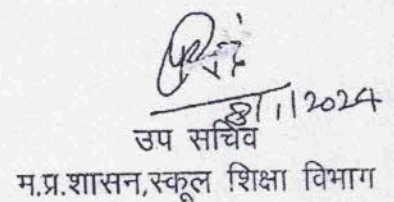 8/1/2024
उप सचिव
म.प्र.शासन,स्कूल शिक्षा विभाग